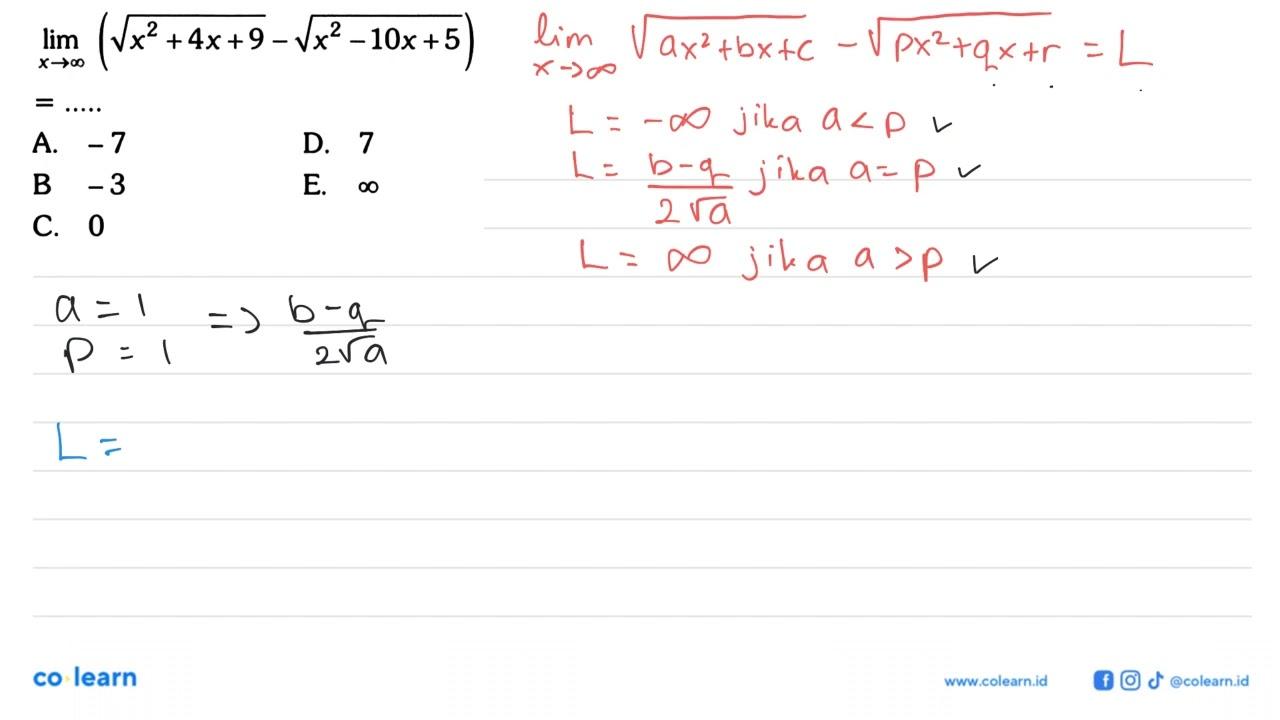 lim x→∞ (√(x² + 4x + 9) − √(x² − 10x + 5))
= .....
A. − 7
B − 3
C. 0
D. 7
E. ∞
lim x→∞ √(ax²+bx+c) − √(px²+qx+r) = L
L = −∞ jika a < p ✓
L = (b−q)/(2√a) jika a = p ✓
L = ∞ jika a > p ✓
a = 1
p = 1
=> (b−q)/(2√a)
L =
co learn
www.colearn.id
@colearn.id